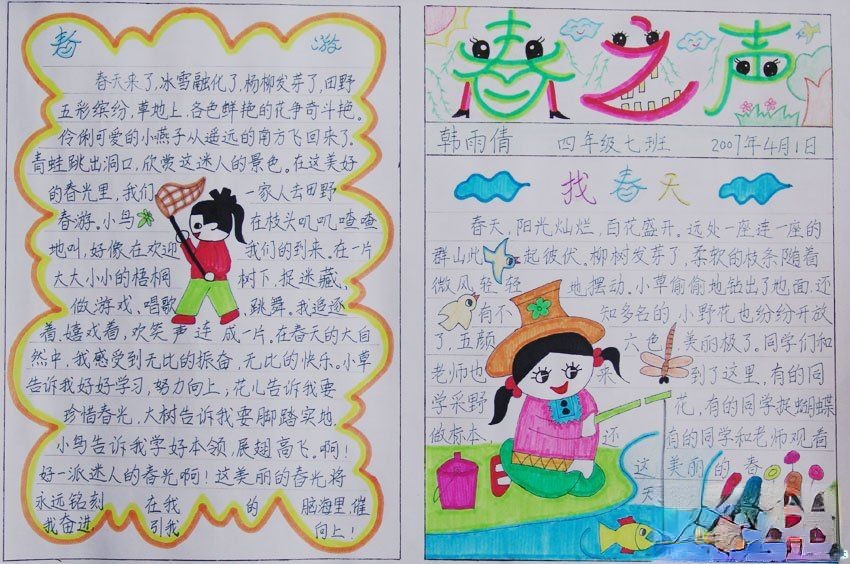 春 游
春天来了,冰雪融化了,杨柳发芽了,田野
五彩缤纷,草地上,各色鲜艳的花争奇斗艳。
伶俐可爱的小燕子从遥远的南方飞回来了。
青蛙跳出洞口,欣赏这迷人的景色。在这美好
的春光里,我们一家人去田野
春游。小鸟在枝头叽叽喳喳
地叫,好像在欢迎我们的到来。在一片
大大小小的梧桐树下,捉迷藏、
做游戏、唱歌、跳舞。我追逐
着,嬉戏着,欢笑声连成一片,在春天的大自
然中,我感受到无比的振奋,无比的快乐。小草
告诉我好好学习,努力向上,花儿告诉我要
珍惜春光,大树告诉我要脚踏实地,
小鸟告诉我学好本领,展翅高飞。啊!
好一派迷人的春光啊!这美丽的春光将
永远铭刻在我的脑海里,催
我奋进引我向上!
春之声
韩雨倩 四年级七班 2007年4月1日
找春天
春天,阳光灿烂,百花盛开。远处一座连一座的
群山此起彼伏。柳树发芽了,柔软的枝条随着
微风轻轻地摆动。小草偷偷地钻出了地面,还
有不知多名的小野花也纷纷开放
了,五颜六色,美丽极了。同学们和
老师也来到了这里,有的同
学采野花,有的同学捉蝴蝶
做标本,还有的同学和老师观看
这美丽的春
天